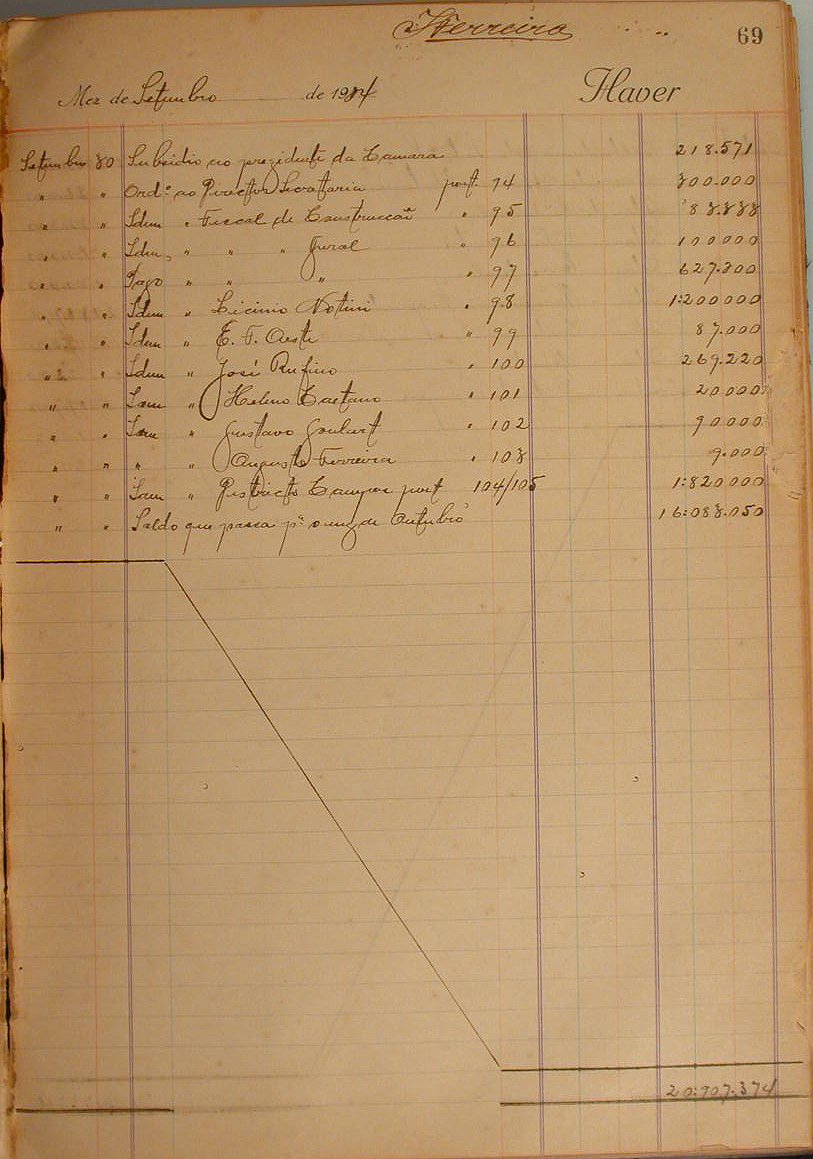 Ferreira 69
Mez de Setembro de 1914 Haver
Setembro 30 Subsidio ao prezidente da Camara 218.571
" " Ord.º ao Director Secretaria port. 94 300.000
" " Idem " Fiscal de Construcção " 95 83.333
" " Idem, " " " Geral " 96 100000
" " Pago " " " " 97 627.300
" " Idem " Licinio Notini " 98 1:200000
" " Idem " E. F. Oeste " 99 87.000
" " Idem " José Rufino " 100 269.220
" " Idem " Heleno Caetano " 101 20000
" " Idem " Gustavo Goulart " 102 90000
" " " " Augusto Ferreira " 103 9.000
" " Idem " Districto Campos port 104/105 1:820000
" " Saldo que passa p.ª o mez de Outubro 16:083.050
20:907.374